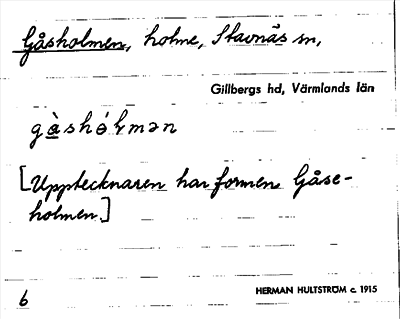 Gåsholmen, holme, Stavnäs sn,
Gillbergs hd, Värmlands län
gàshólmən
[Upptecknaren har formen Gåse-
holmen.]
HERMAN HULTSTRÖM c. 1915
6